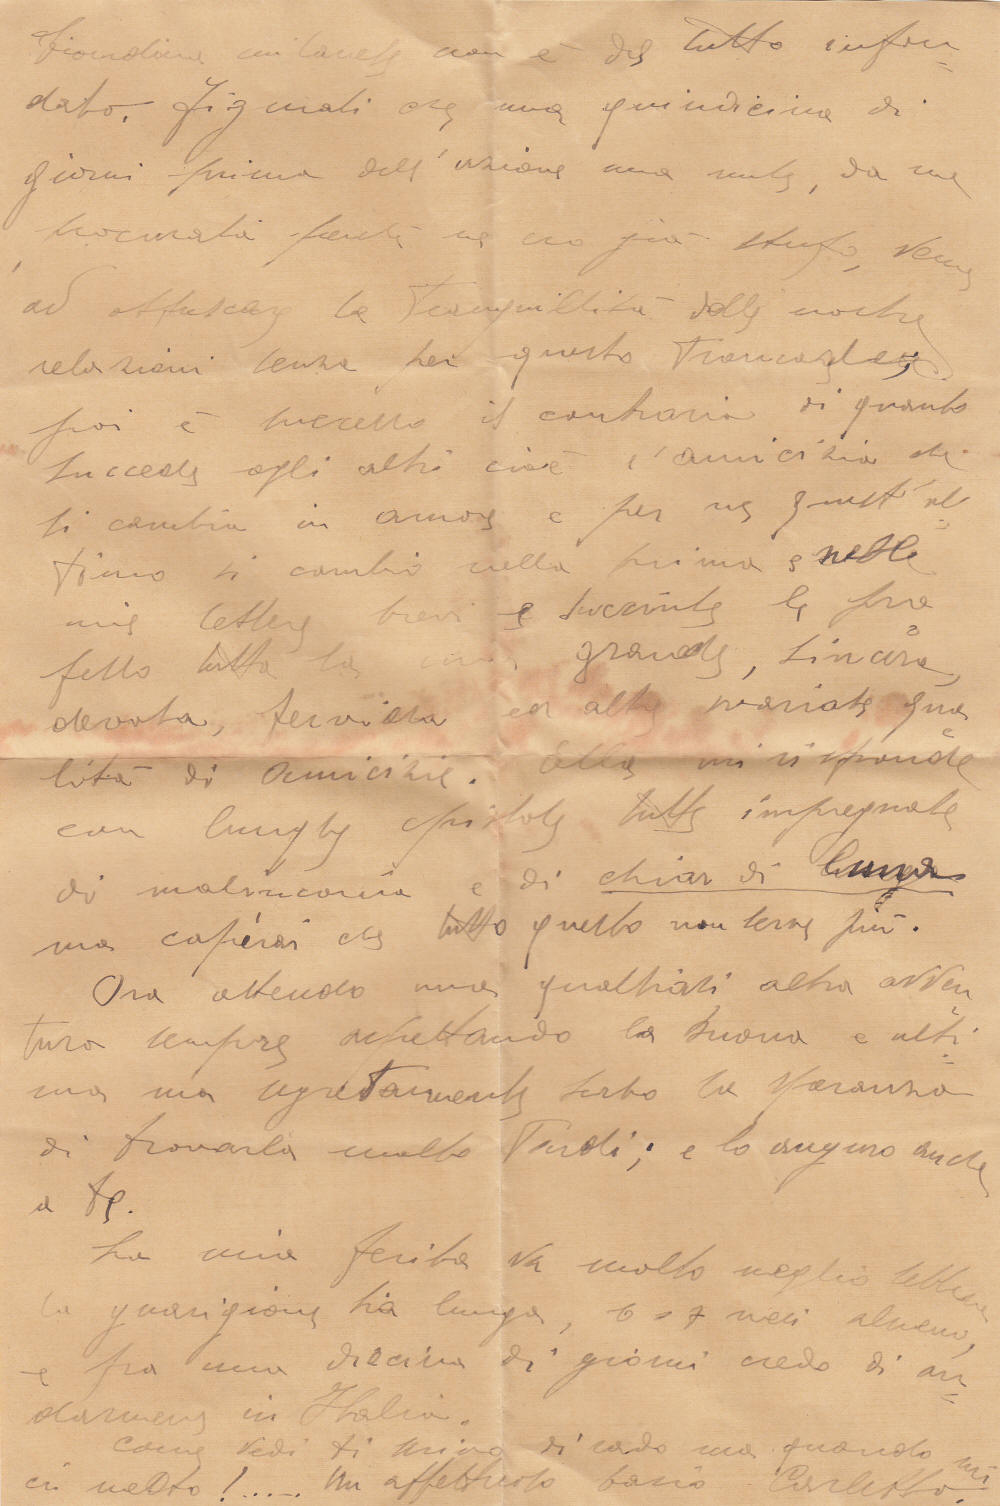 biondina milanese non è del tutto infon=
dato. Figurati che una quindicina di
giorni prima dell'azione una nube, da me
procurata perché ne ero già stufo, venne
ad offuscare la tranquillità delle nostre
relazioni senza per questo troncarle;
poi è successo il contrario di quanto
succede agli altri cioè l'amicizia che
si cambia in amore e per me quest'ul=
timo si cambiò nella prima e nelle
mie lettere brevi e succinte le pro
fesso tutta la mia grande, sincera,
devota, fervida ed altre svariate qua
lità di amicizie. Ella mi risponde
con lunghe epistole tutte impregnate
di malinconia e di chiar di luna
ma capirai che tutto questo non serve più.
Ora attendo una qualsiasi altra avven
tura sempre aspettando la buona e ulti=
ma ma segretamente serbo la speranza
di trovarla molto tardi; e lo auguro anche
a te.
La mia ferita va molto meglio sebbene
la guarigione sia lunga, 6 o 7 mesi almeno,
e fra una diecina di giorni credo di an=
darmene in Italia.
Come vedi ti scrivo di rado ma quando mi
ci metto!..... Un affettuoso bacio Carletto.